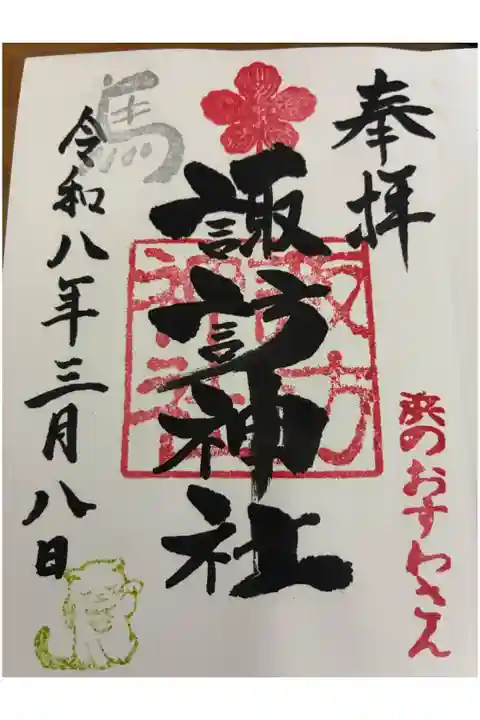 奉拝
浜のおすわさん
諏訪神社
諏方神社
馬
令和八年三月八日